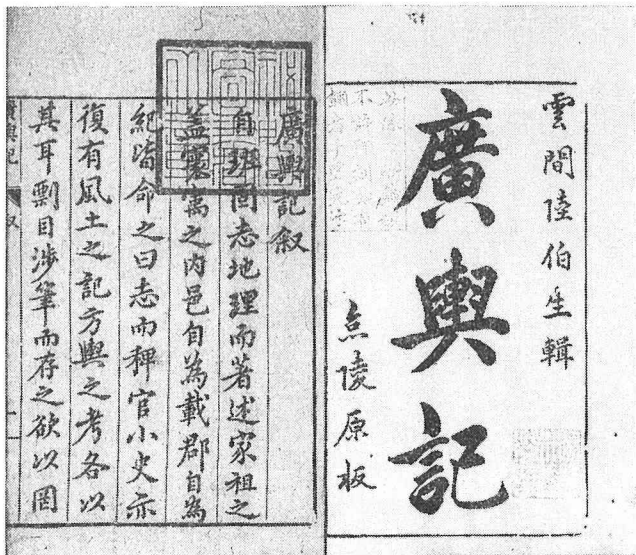 雲間陸伯生輯
廣輿記
原板
廣輿記叙
自班固志地理而著述家祖之
蓋寰㝢之内邑自為載郡自為
紀皆命之曰志而稗官小史亦
復有風土之記方輿之考各以
其耳剽目涉筆而存之欲以罔